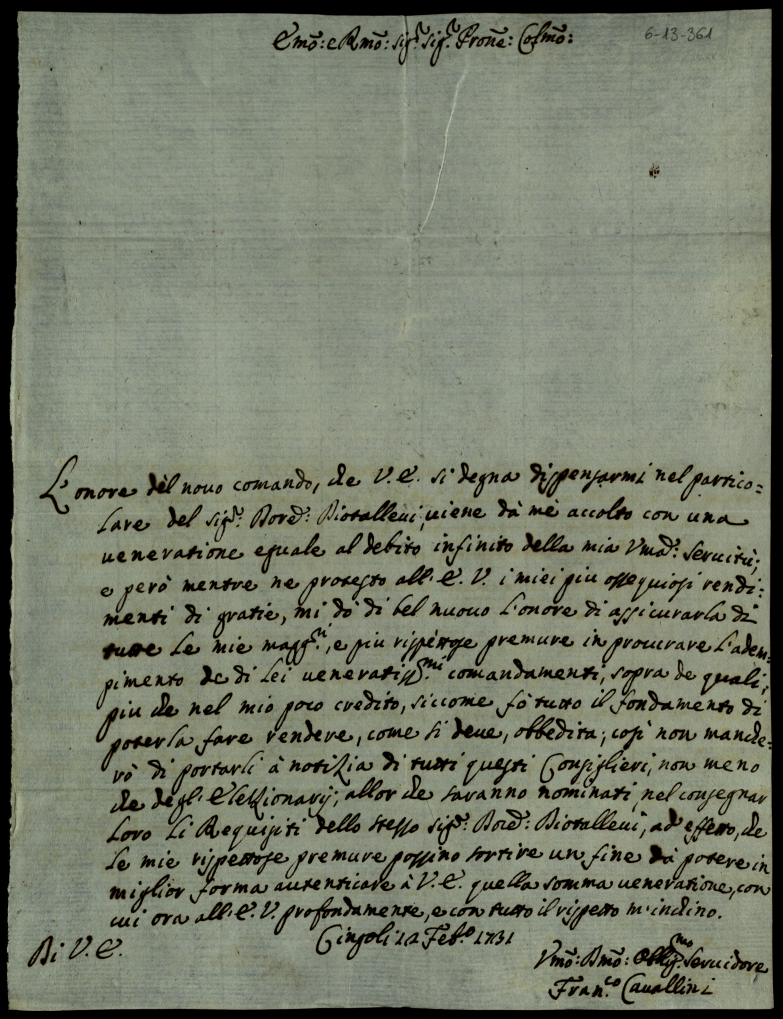 Emo: e Rmo: Sig.r Sig.r Prone: Colmo:
6-13-361
L'onore del novo comando, che V.E. si degna dispensarmi nel partico=
lare del Sig.r Biotallevi, viene dà me accolto con una
veneratione eguale al debito infinito della mia Servitù;
e però mentre ne protesto all'E.V. i miei più ossequiosi rendi:
menti di gratie, mi dò di bel nuovo l'onore di assicurarla di
tutte le mie magg.ri, e più rispettose premure in procurare l'adem=
pimento de di Lei veneratiss.mi comandamenti, sopra de quali,
più che nel mio poco credito, siccome fò tutto il fondamento di
poterla fare rendere, come si deve, obbedita; così non manche=
rò di portarli à notizia di tutti questi Consiglieri, non meno
che degl'Elezzionarij, allor che saranno nominati, nel consegnar
loro li Requisiti dello stesso Sig.r Biotallevi, ad effetto, che
le mie rispettose premure possino sortire un fine dà potere in
miglior forma autenticare à V.E. quella somma veneratione, con
cui ora all'E.V. profondamente, e con tutto il rispetto m'inchino.
Cingoli 12 Feb.o 1731
Di V.E.
Vmo: Dmo: Oblig.mo Servidore
Fran.co Cavallini